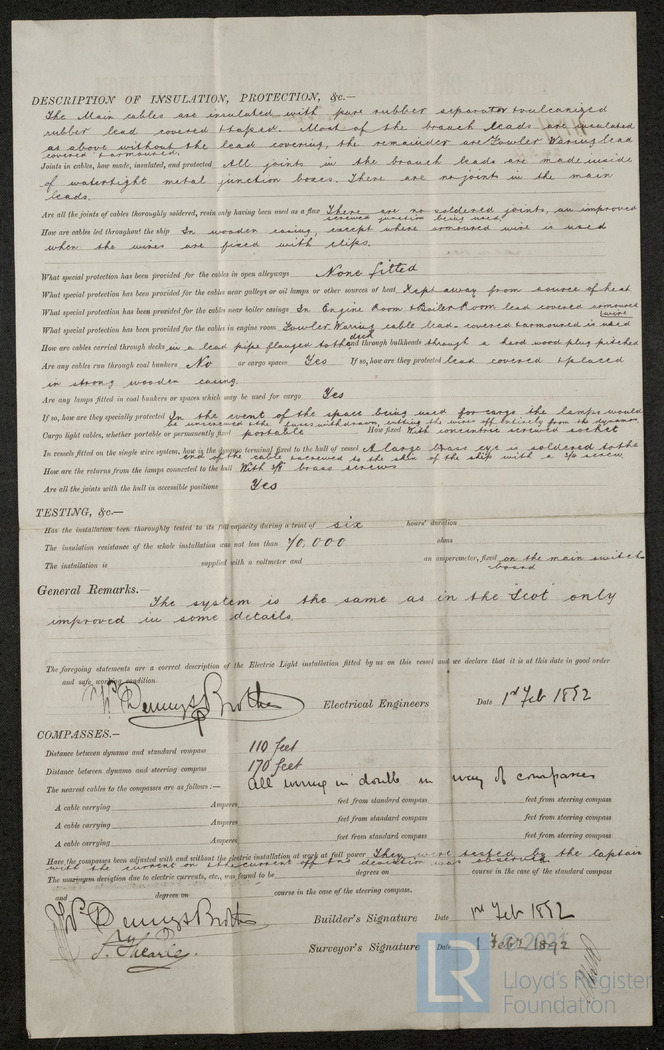 DESCRIPTION OF INSULATION, PROTECTION, &c.—
The Main cables are insulated with pure rubber separator & vulcanized
rubber lead covered & taped. Most of the branch leads are insulated
as above without the lead covering, the remainder are Fowler Waring lead
covered & armoured.
Joints in cables, how made, insulated, and protected All joints in the branch leads are made inside
of watertight metal junction boxes. There are no joints in the main
leads.
Are all the joints of cables thoroughly soldered, resin only having been used as a flux There are no soldered joints, an improved
screwed junction being used.
How are cables led throughout the ship In wooden casing, except where armoured wire is used
when the wires are fixed with clips.
What special protection has been provided for the cables in open alleyways None fitted
What special protection has been provided for the cables near galleys or oil lamps or other sources of heat Kept away from source of heat
What special protection has been provided for the cables near boiler casings In Engine Room & Boiler Room lead covered armoured
wire
What special protection has been provided for the cables in engine room Fowler Waring cable lead-covered & armoured is used
How are cables carried through decks in a lead pipe flanged to the deck and through bulkheads through a hard wood plug pitched
Are any cables run through coal bunkers No or cargo spaces Yes If so, how are they protected lead covered & placed
in strong wooden casing.
Are any lamps fitted in coal bunkers or spaces which may be used for cargo Yes
If so, how are they specially protected In the event of the space being used for cargo the lamps would
be unscrewed the fuses withdrawn, cutting the wires off entirely from the dynamo
Cargo light cables, whether portable or permanently fixed portable How fixed With concentric screwed socket
In vessels fitted on the single wire system, how is the dynamo terminal fixed to the hull of vessel A large brass eye is soldered to the
end of the cable & screwed to the skin of the ship with a 3/4 screw
How are the returns from the lamps connected to the hull With 3/8 brass screws
Are all the joints with the hull in accessible positions Yes
TESTING, &c.—
Has the installation been thoroughly tested to its full capacity during a trial of six hours' duration
The insulation resistance of the whole installation was not less than 70,000 ohms
The installation is supplied with a voltmeter and an amperemeter, fixed on the main switch
board
General Remarks.—
The system is the same as in the "Scot" only
improved in some details.
The foregoing statements are a correct description of the Electric Light installation fitted by us on this vessel and we declare that it is at this date in good order
and safe working condition.
Wm Denny & Brothers Electrical Engineers Date 1st Feb 1892
COMPASSES.—
Distance between dynamo and standard compass 110 feet
Distance between dynamo and steering compass 170 feet
The nearest cables to the compasses are as follows :— All wiring is double in way of compasses
A cable carrying Amperes feet from standard compass feet from steering compass
A cable carrying Amperes feet from standard compass feet from steering compass
A cable carrying Amperes feet from standard compass feet from steering compass
Have the compasses been adjusted with and without the electric installation at work at full power They were tested by the Captain
with the current on & the current off & no deviation was observed
The maximum deviation due to electric currents, etc., was found to be degrees on course in the case of the standard compass
and degrees on course in the case of the steering compass.
Wm Denny & Brothers Builder's Signature Date 1st Feb 1892
Surveyor's Signature Date 1 Feby 1892
© 2021
LR
Lloyd's Register
Foundation